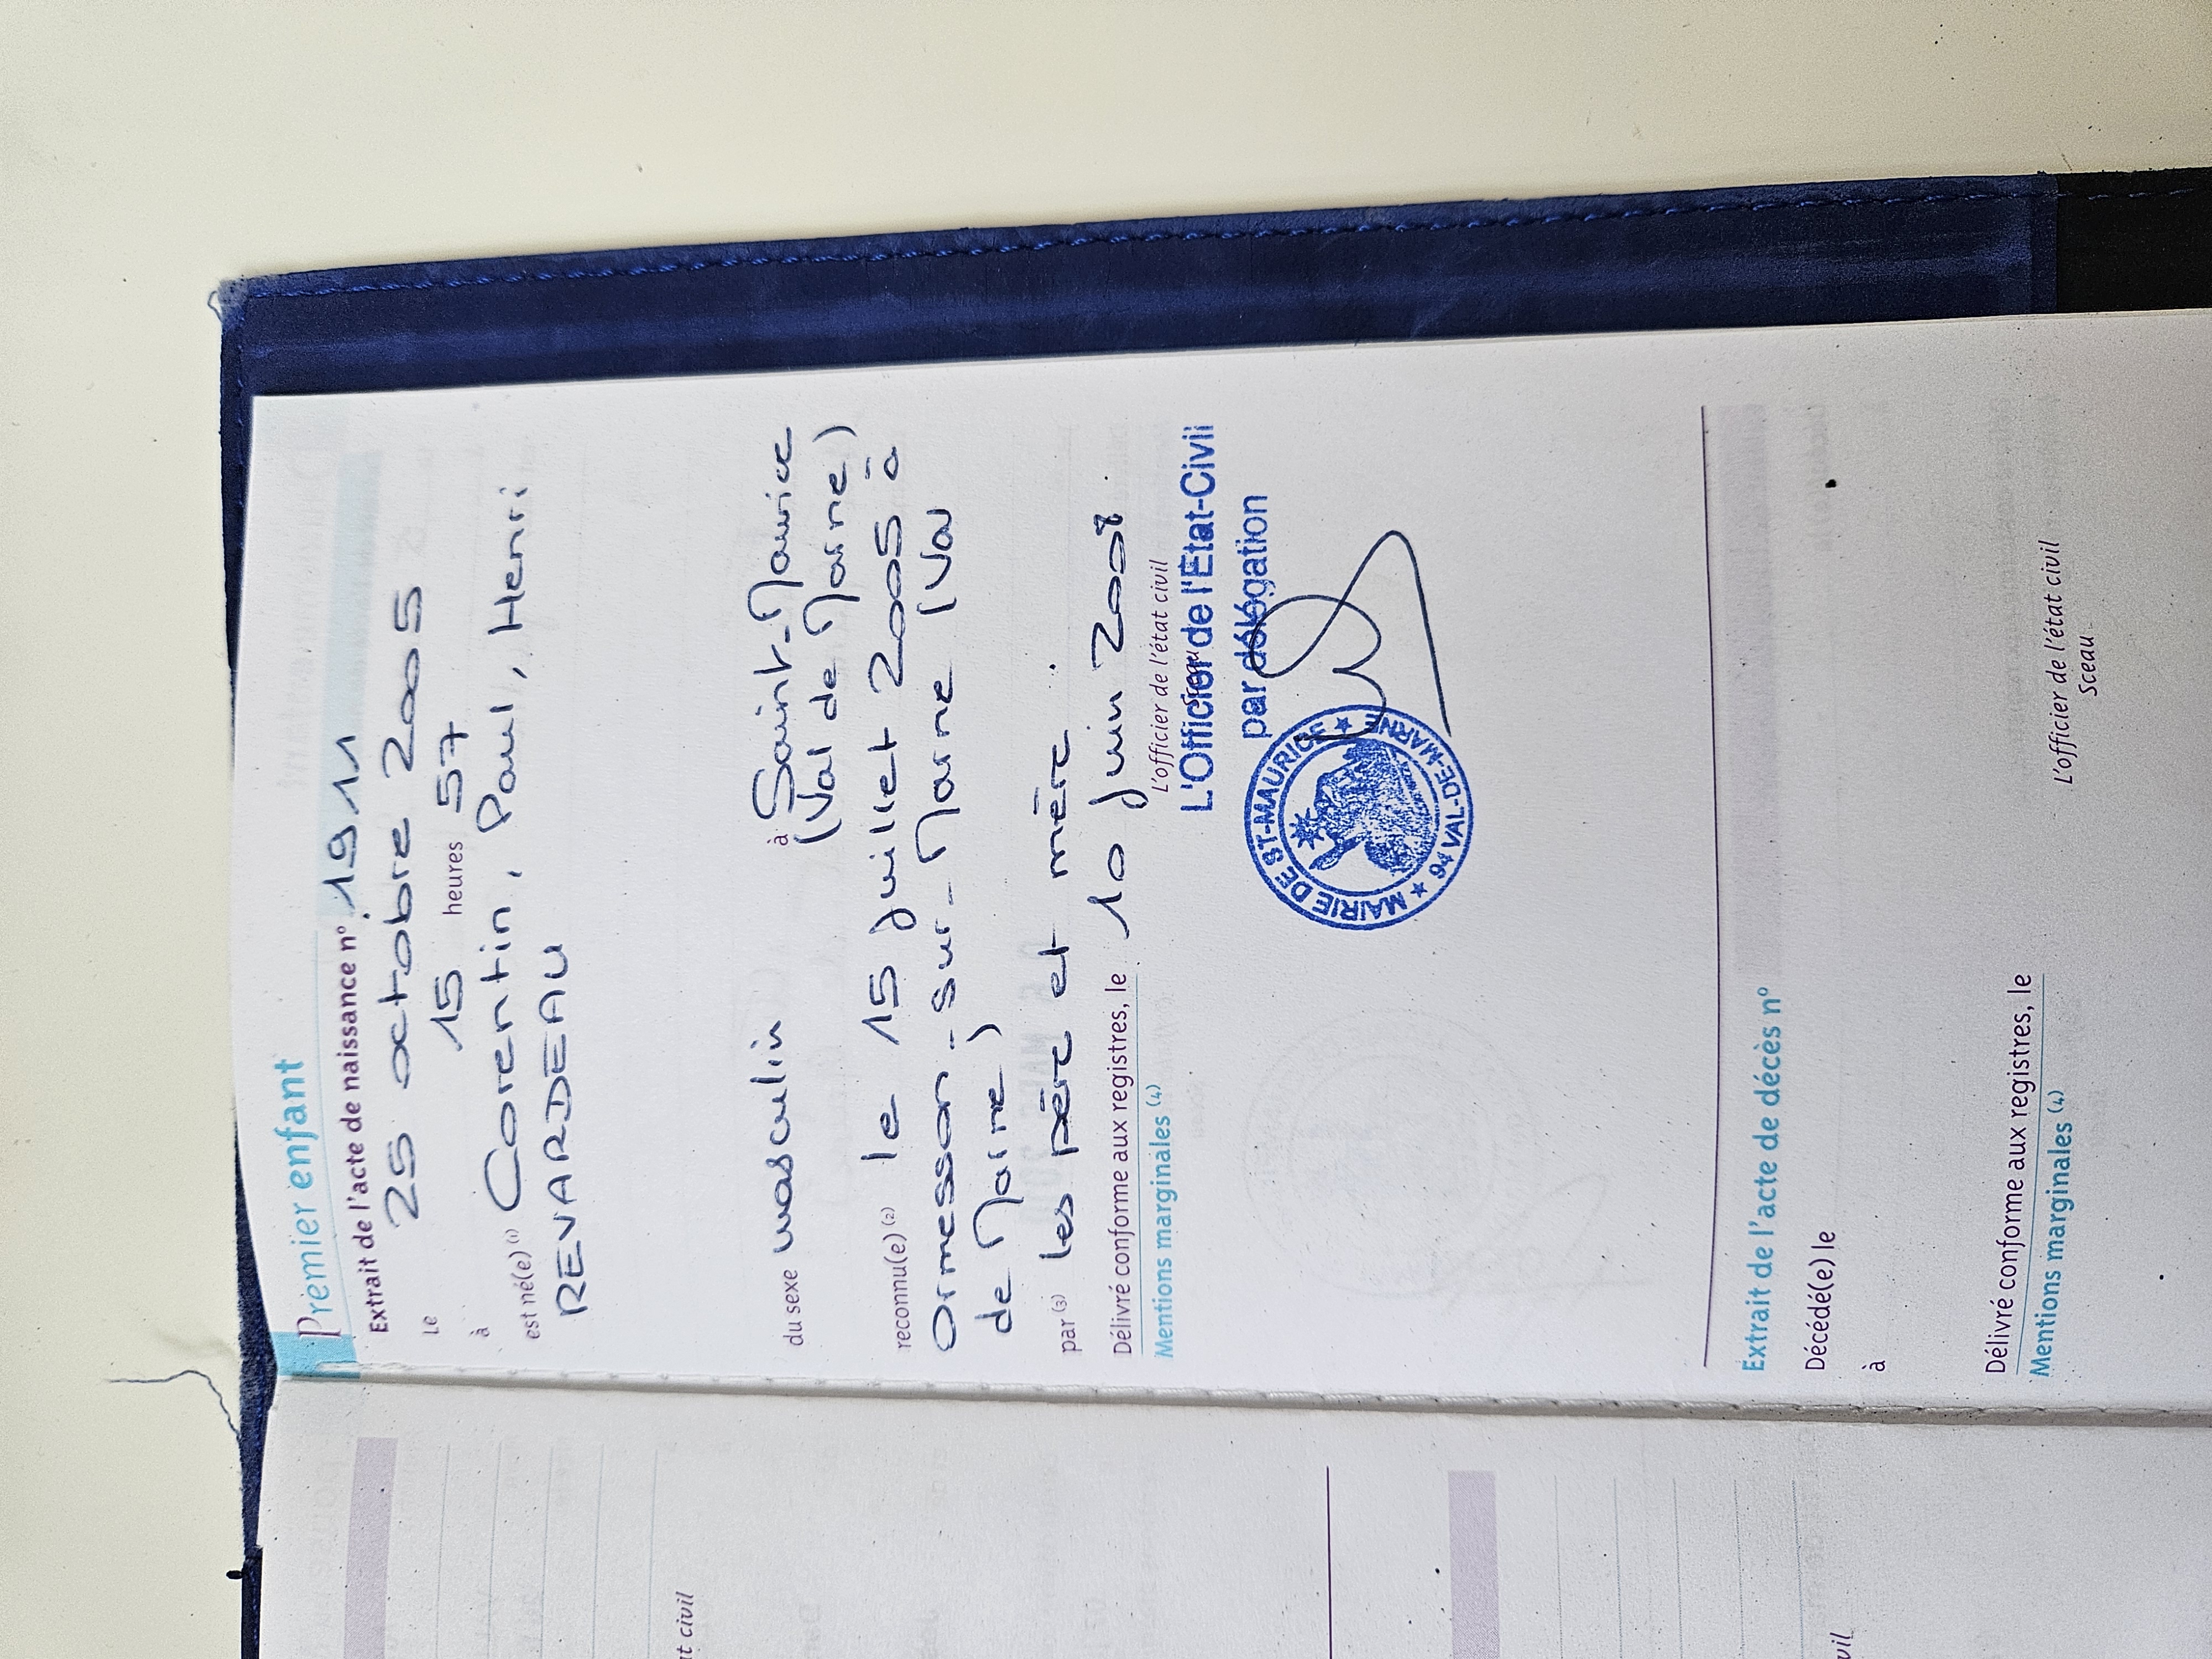 Premier enfant
Extrait de l'acte de naissance n° 1911
Le 25 octobre 2005
à 15 heures 57
est né(e) (1) Corentin, Paul, Henri
REVARDEAU
du sexe masculin à Saint-Maurice
(Val de Marne)
reconnu(e) (2) le 15 juillet 2005 à
Ormesson-sur-Marne (Val
de Marne)
par (3) les père et mère
Délivré conforme aux registres, le 10 juin 2008
Mentions marginales (4)
L'officier de l'état civil
Sceau
L'Officier de l'État-Civil
par délégation
MAIRIE DE ST-MAURICE
94 VAL-DE-MARNE
Extrait de l'acte de décès n°
Décédé(e) le
à
Délivré conforme aux registres, le
Mentions marginales (4)
L'officier de l'état civil
Sceau
t civil
vil